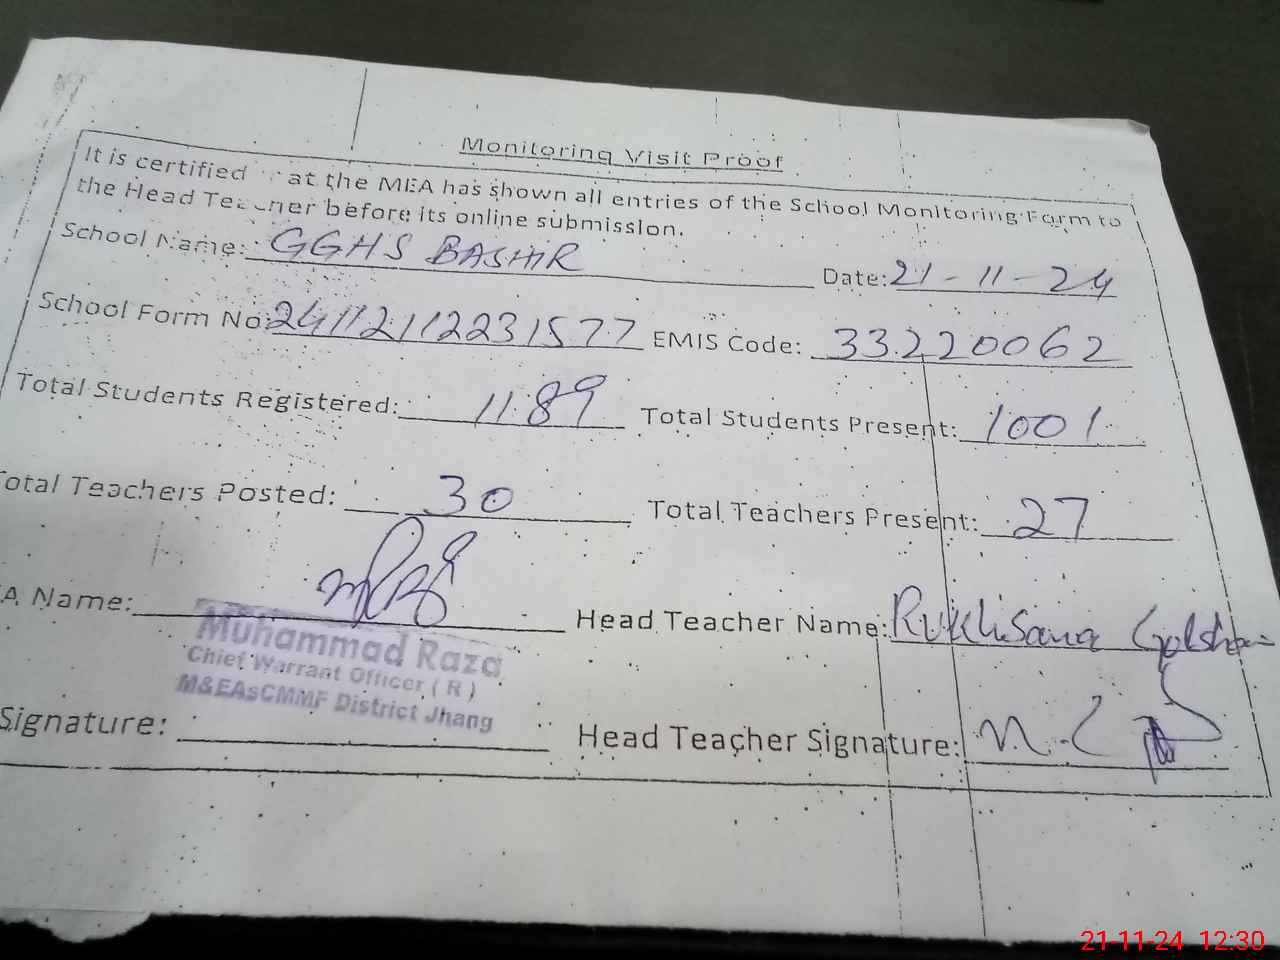 Monitoring Visit Proof
It is certified at the MEA has shown all entries of the School Monitoring Form to
the Head Teacher before its online submission.
School Name: GGHS BASHIR Date: 21-11-24
School Form No: 241121112231577 EMIS Code: 33220062
Total Students Registered: 1189 Total Students Present: 1001
Total Teachers Posted: 30 Total Teachers Present: 27
A Name: Head Teacher Name: Rukhsana
Muhammad Raza
Chief Warrant Officer ( R )
M&EAsCMMF District Jhang
Signature: Head Teacher Signature:
21-11-24 12:30